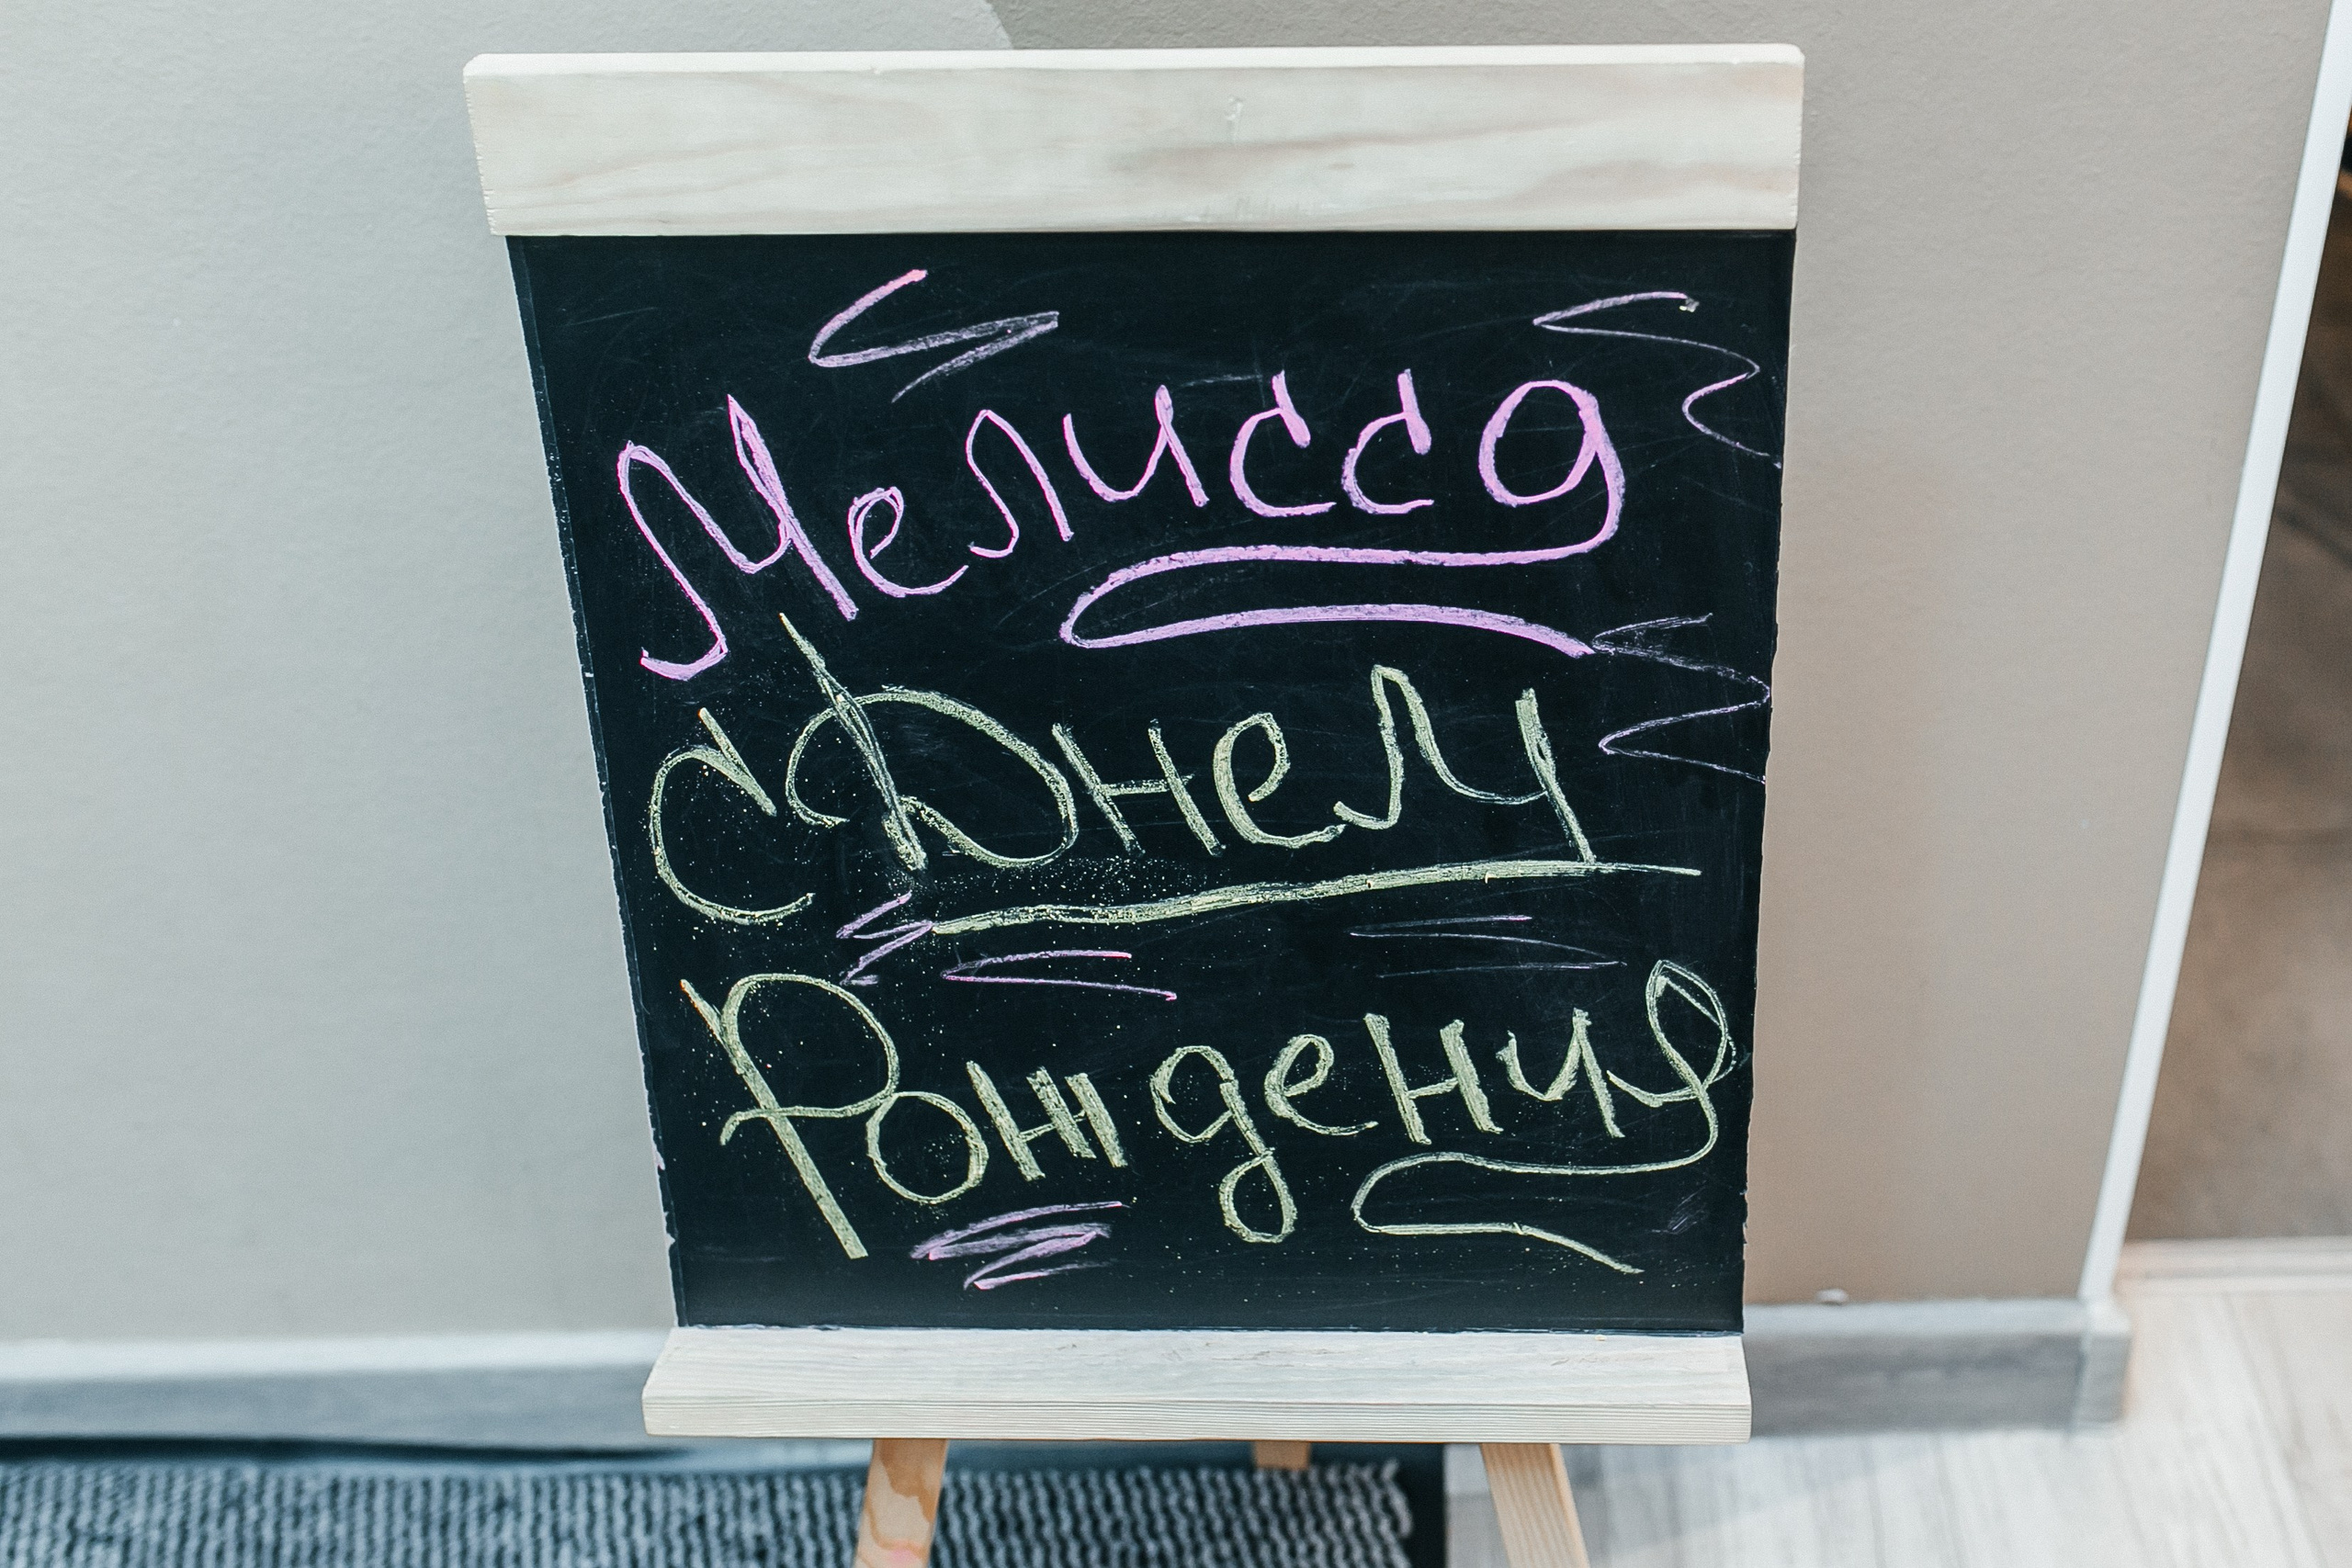 Мелисса
с Днем
Рождения